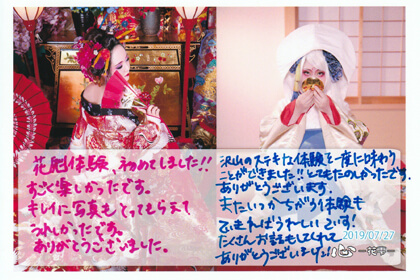 花魁体験、初めてしました!!
すごく楽しかったです。
キレイに写真もとってもらえて
うれしかったです。
ありがとうございました。
沢山のステキな体験を一度に味わう
ことができました!!とてもたのしかったです。
ありがとうございます。
またいつかちがう体験も
できればうれしいです!
たくさんお話もしてくれて
ありがとうございました!
2019/07/27
心-花雫-